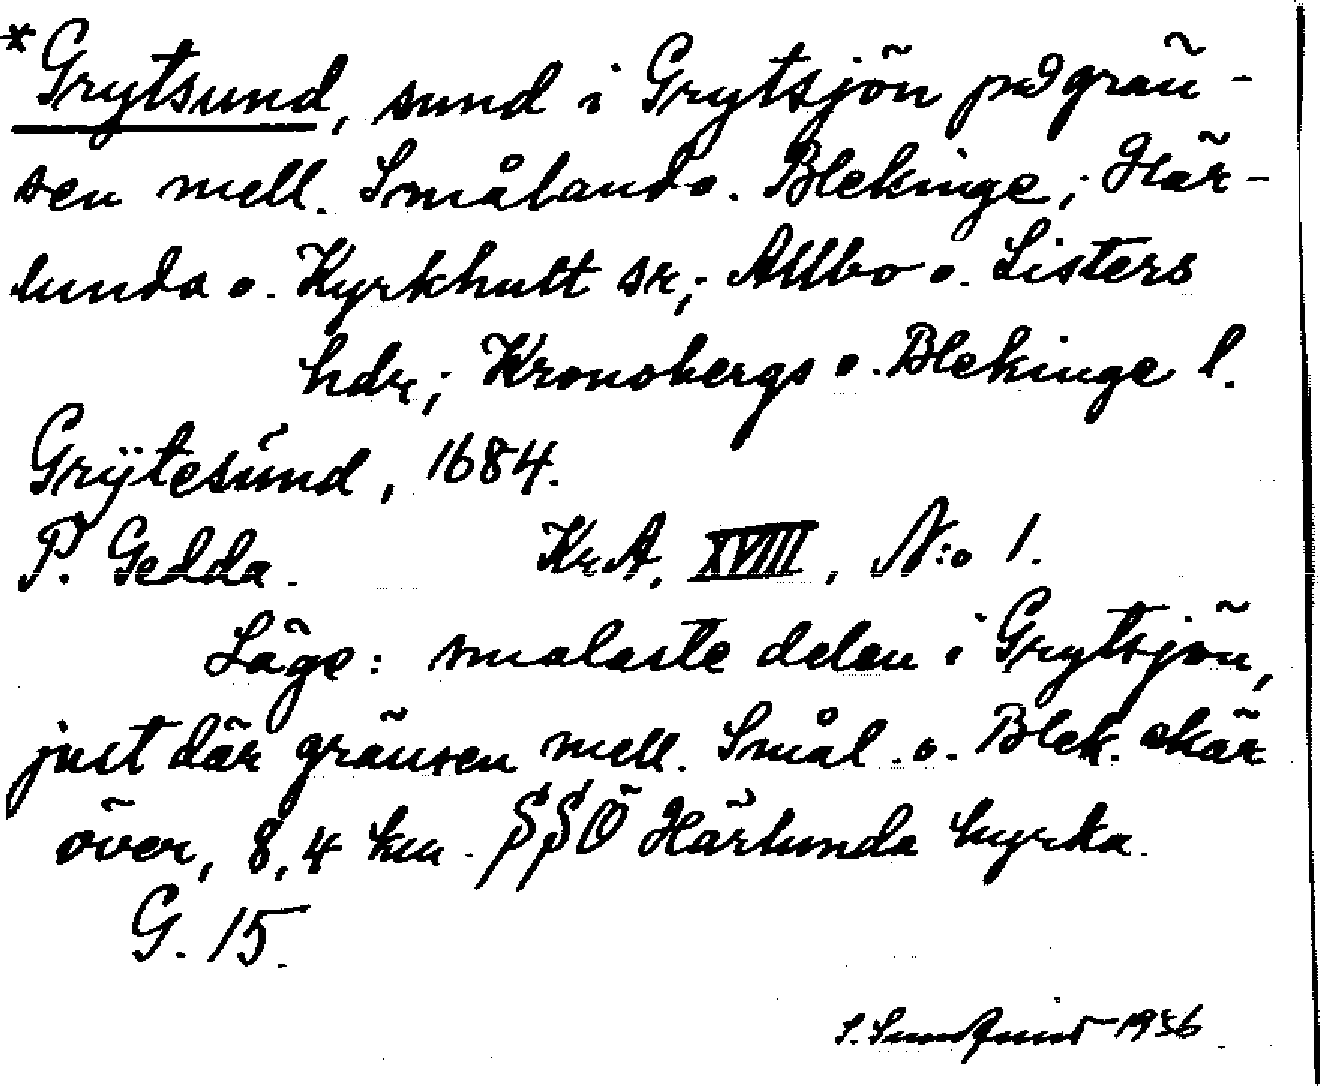 *Grytsund, sund i Grytsjön på grän-
sen mell. Småland o. Blekinge; Här-
lunda o. Kyrkhult sr; Allbo o. Listers
hdr; Kronobergs o. Blekinge l.
Grÿtesund, 1684.
P. Gedda. Kr.A. XVIII, N:o 1.
Läge: smalaste delen i Grytsjön,
just där gränsen mell. Smål. o. Blek. skär
över, 8,4 km. SSÖ Härlunda kyrka.
G. 15.
S. Sundquist 1936